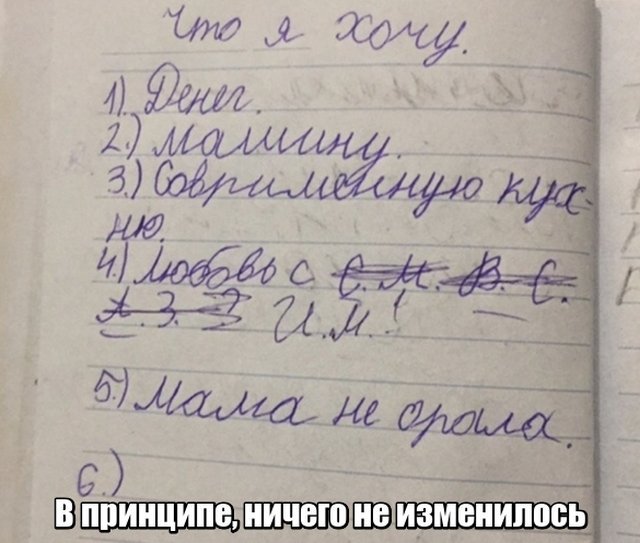 Что я хочу.
1). Денег.
2.) Машину.
3.) Соврименную кух-
ню.
4.) Любовь с С. М. В. С.
А. З. И. М!
5.) Мама не орала.
6.)
В принципе, ничего не изменилось